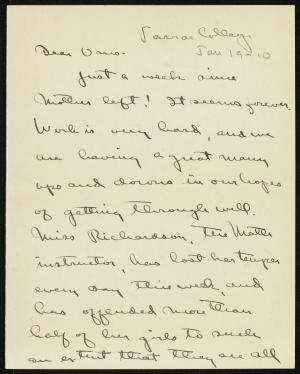 Vassar College
Jan 19-10
Dear Ones-
Just a week since
Mother left! It seems forever.
Work is very hard, and we
are having a great many
ups and downs in our hopes
of getting through well.
Miss Richardson, the Math
instructor, has lost her temper
every day this week, and
has offended more than
half of her girls to such
an extent that they are all